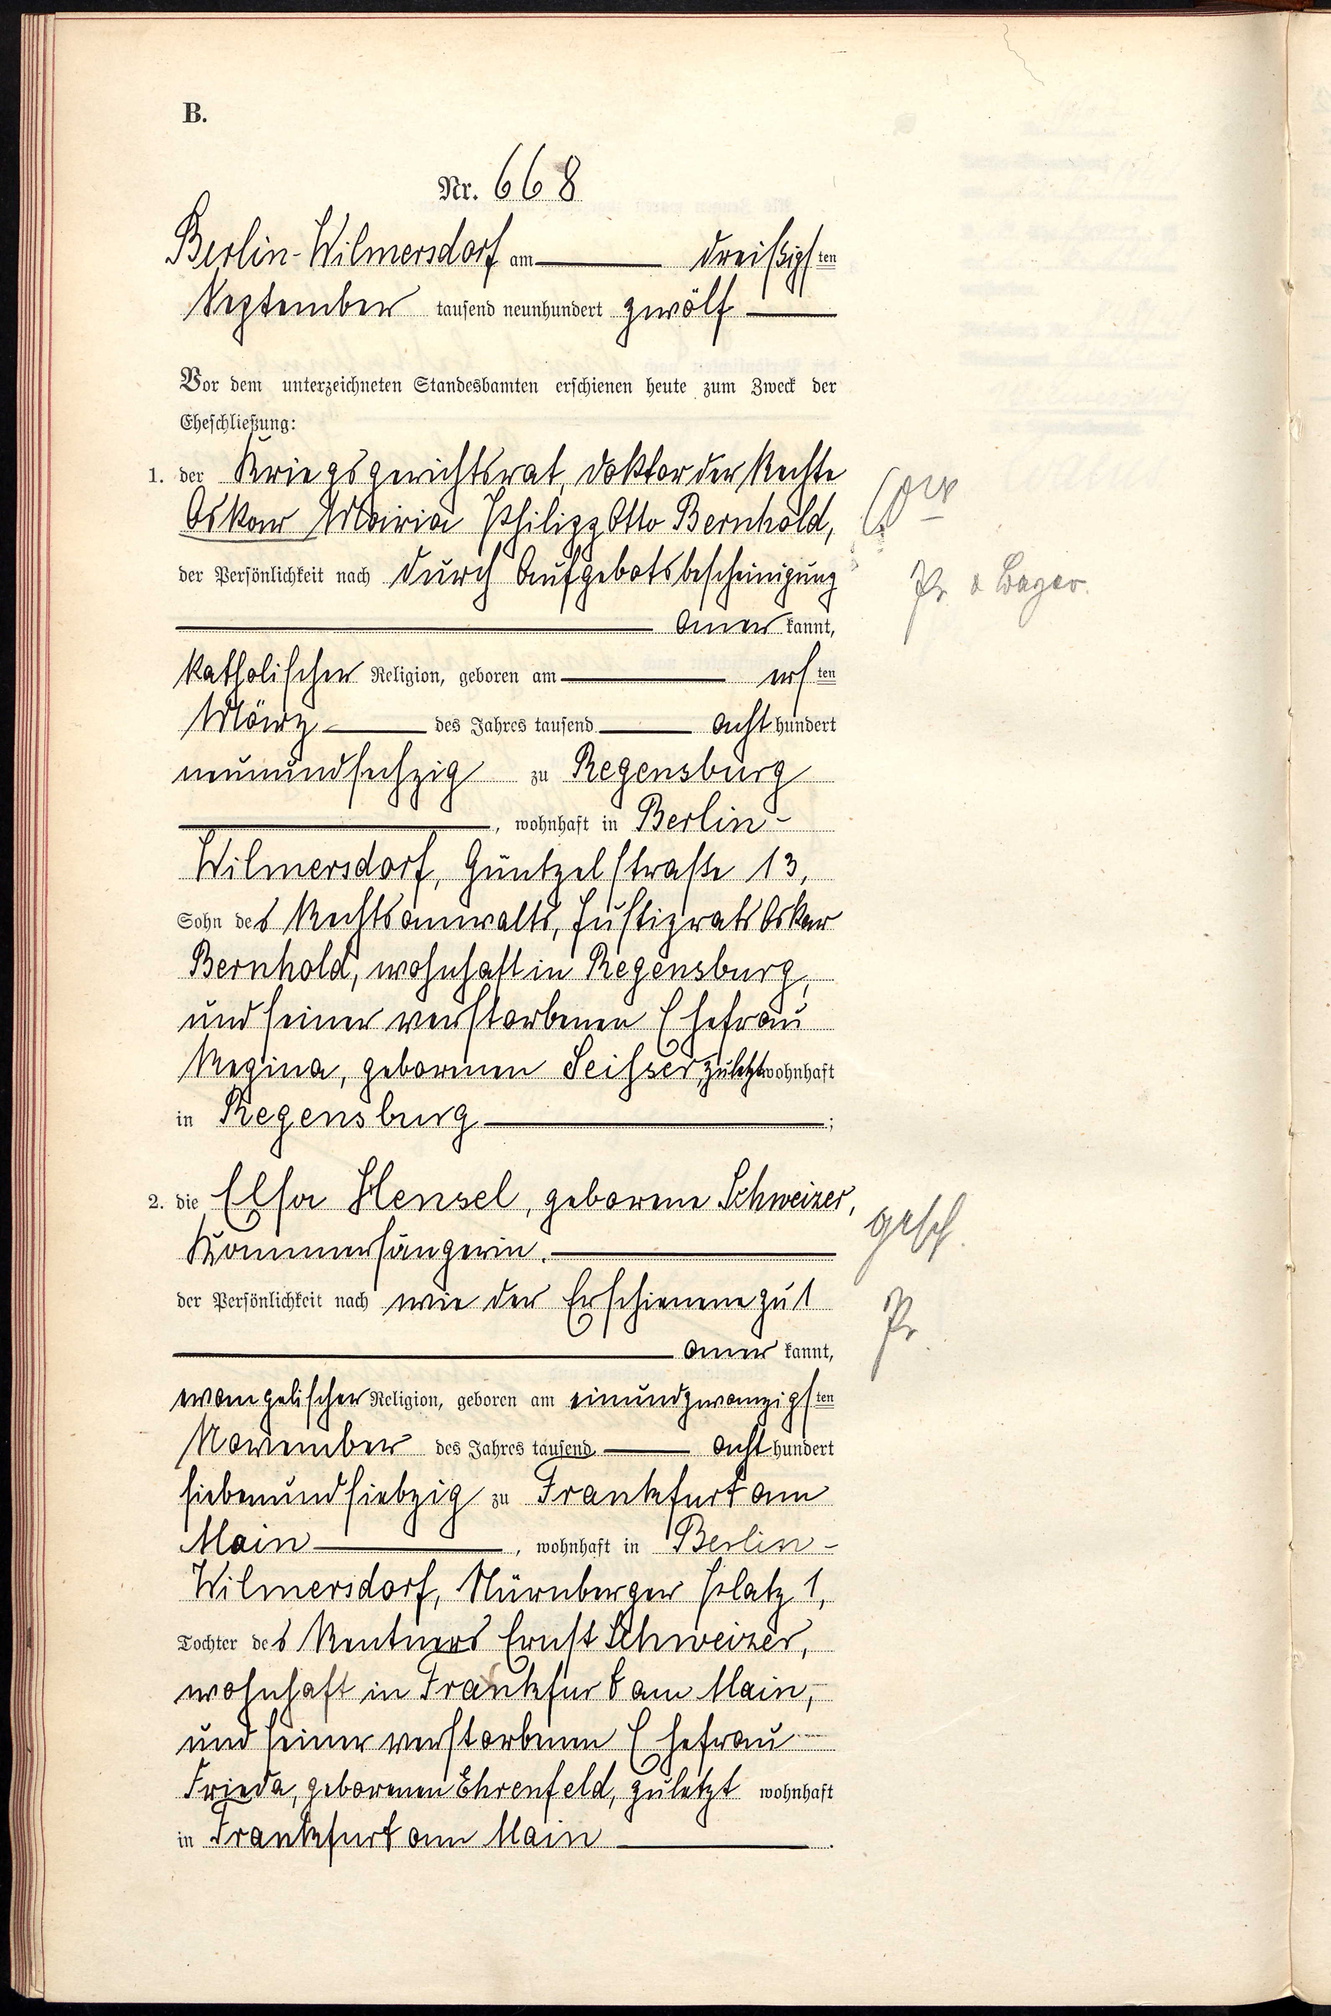 B.
Nr. 668
Berlin-Wilmersdorf am dreißigsten
September tausend neunhundert zwölf
Vor dem unterzeichneten Standesbamten erschienen heute zum Zweck der
Eheschließung:
1. der Kriegsgerichtsrat, Doktor der Rechte
Oskar Maria Philipp Otto Bernhold,
der Persönlichkeit nach durch Aufgebotsbescheinigung
anerkannt,
katholischer Religion, geboren am ersten
März des Jahres tausend achthundert
neunundsechzig zu Regensburg
, wohnhaft in Berlin-
Wilmersdorf, Güntzelstraße 13,
Sohn des Rechtsanwalts, Justizrats Oskar
Bernhold, wohnhaft in Regensburg,
und seiner verstorbenen Ehefrau
Regina, geborenen Seisser, zuletzt wohnhaft
in Regensburg ;
2. die Elsa Hensel, geborene Schweizer,
gesch.
Kammersängerin,
der Persönlichkeit nach wie der Erschienene zu 1
Pr.
anerkannt,
evangelischer Religion, geboren am einundzwanzigsten
November des Jahres tausend achthundert
siebenundsiebzig zu Frankfurt am
Main , wohnhaft in Berlin-
Wilmersdorf, Nürnberger Platz 1,
Tochter des Rentners Ernst Schweizer,
wohnhaft in Frankfurt am Main,
und seiner verstorbenen Ehefrau
Frieda, geborenen Ehrenfeld, zuletzt wohnhaft
in Frankfurt am Main .